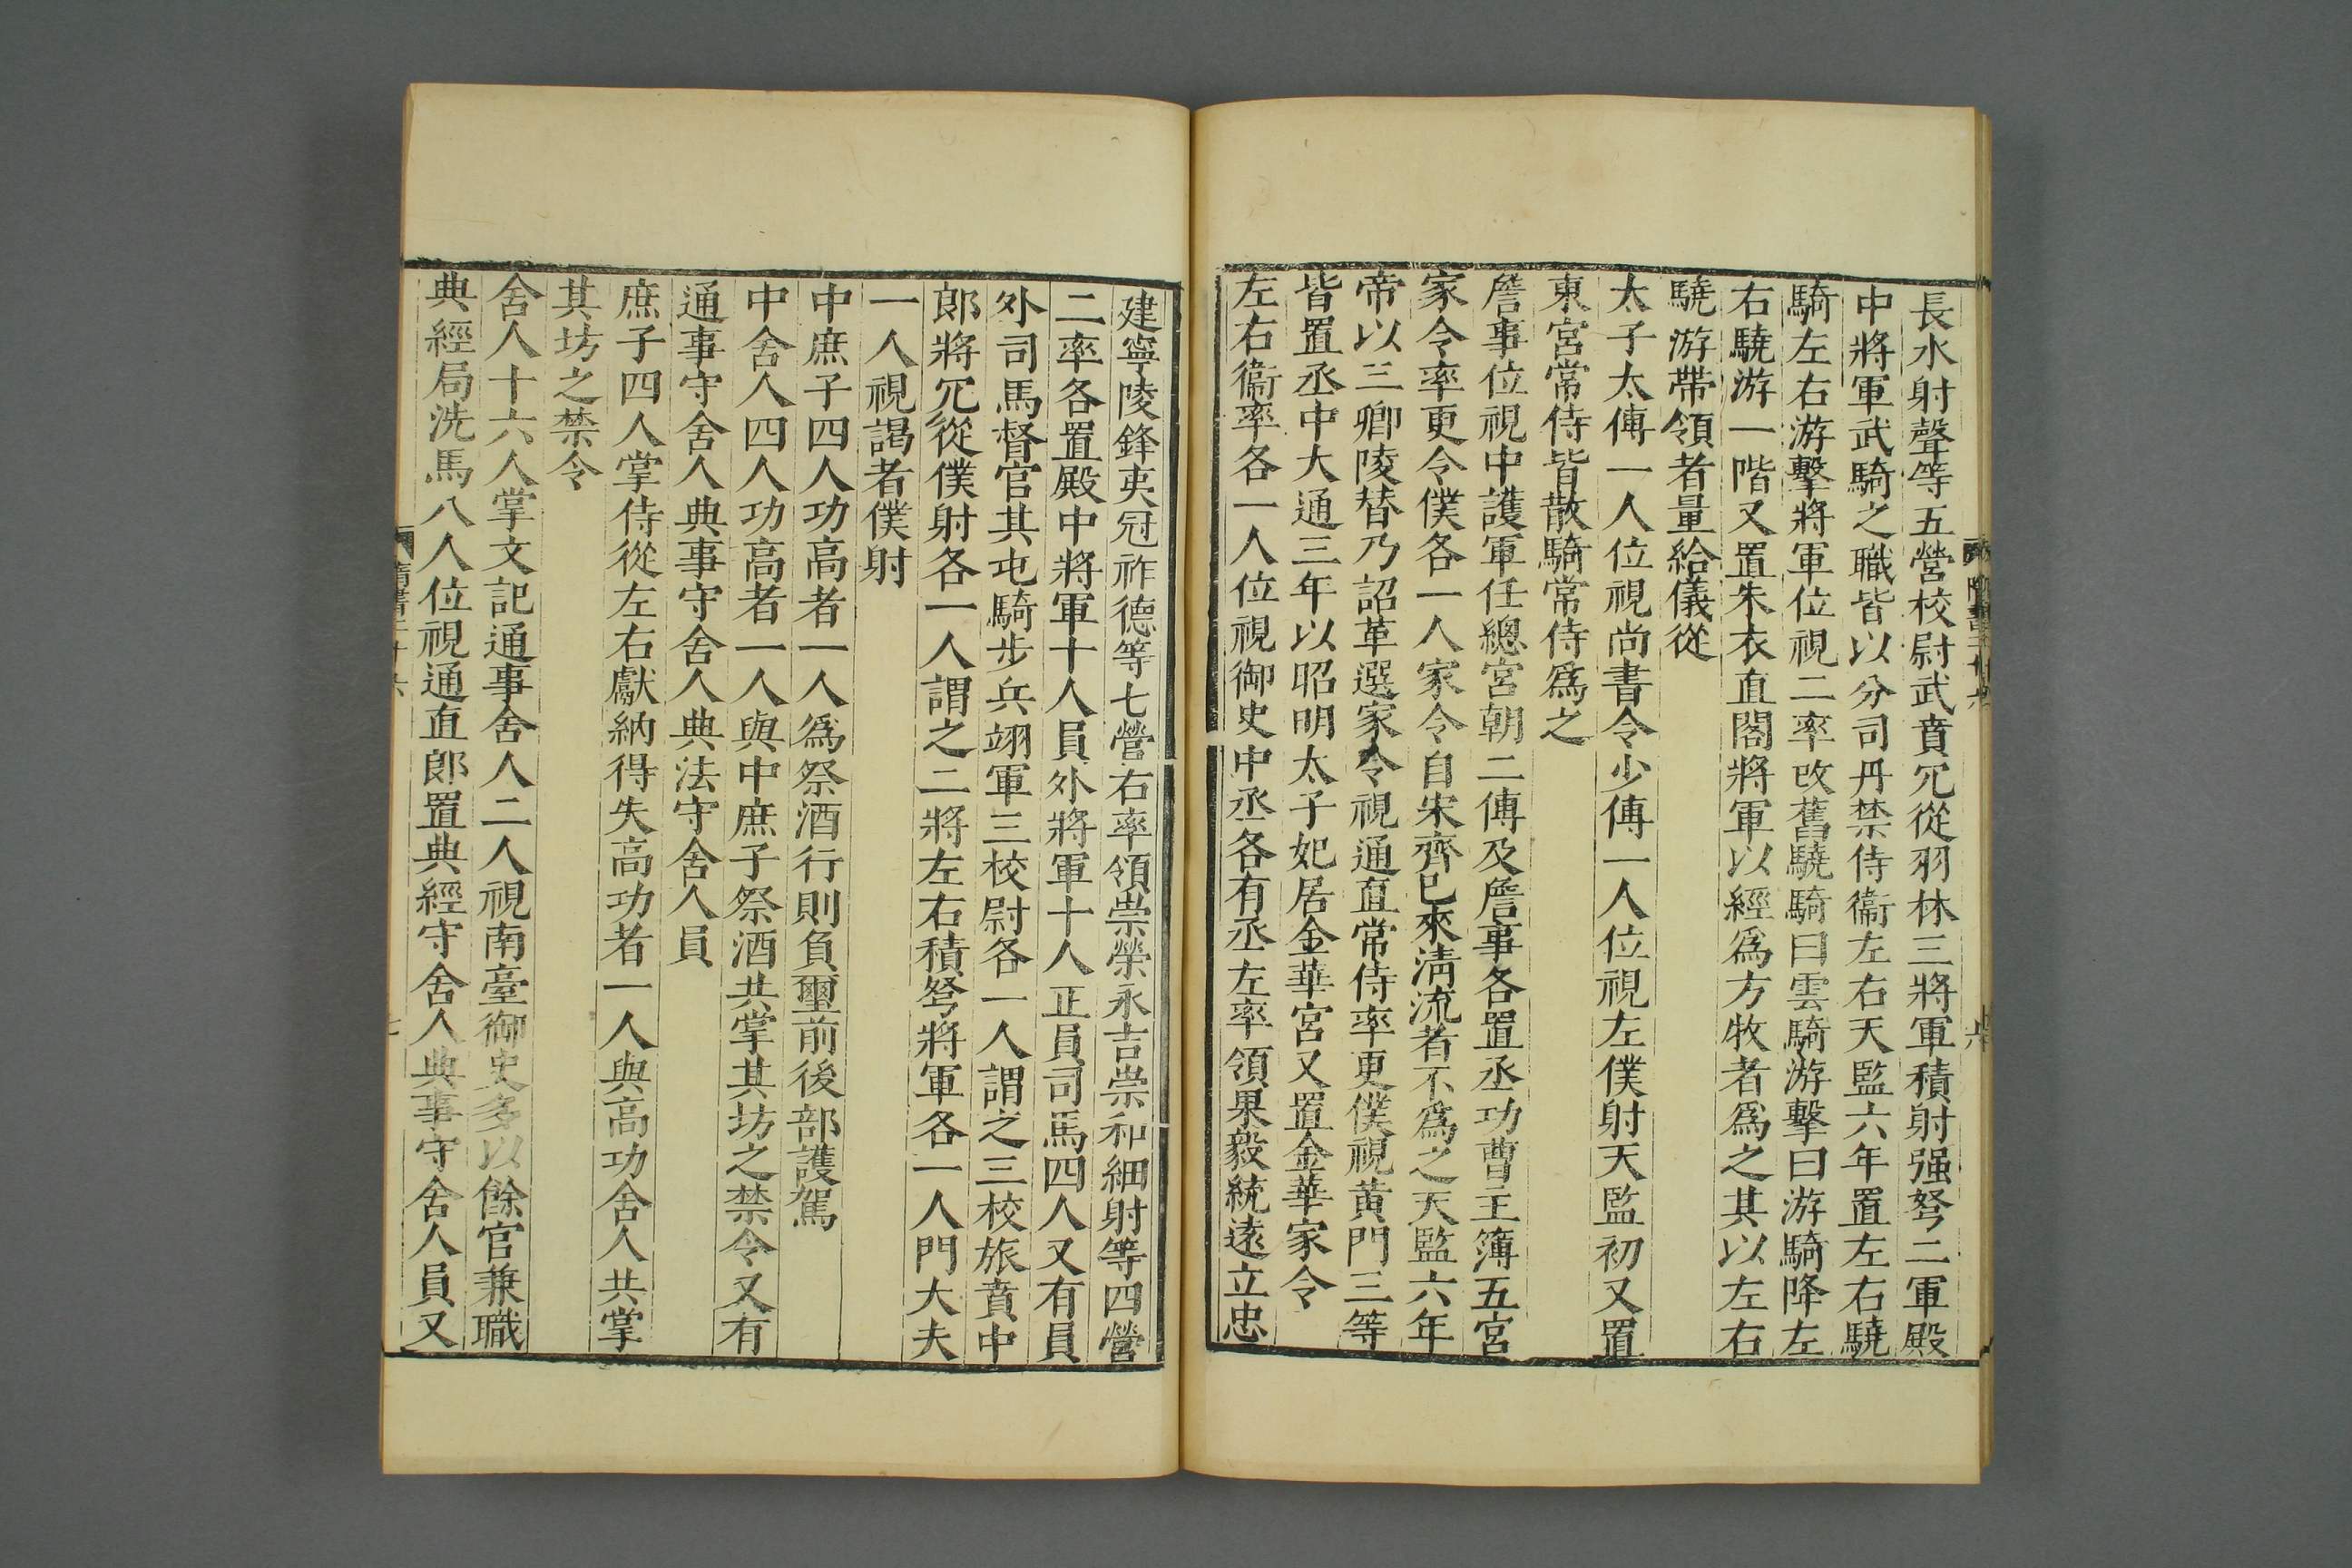 長水射聲等五營校尉武賁冗從羽林三將軍積射强弩二軍殿
中將軍武騎之職皆以分司丹禁侍衞左右天監六年置左右驍
騎左右游擊將軍位視二率改舊驍騎曰雲騎游擊曰游騎降左
右驍游一階又置朱衣直閤將軍以經爲方牧者爲之其以左右
驍游帶領者量給儀從
太子太傅一人位視尚書令少傅一人位視左僕射天監初又置
東宮常侍皆散騎常侍爲之
詹事位視中護軍任總宮朝二傅及詹事各置丞功曹主簿五官
家令率更令僕各一人家令自宋齊已來淸流者不爲之天監六年
帝以三卿陵替乃詔革選家令視通直常侍率更僕視黃門三等
皆置丞中大通三年以昭明太子妃居金華宮又置金華家令
左右衞率各一人位視御史中丞各有丞左率領果毅統遠立忠
建寧陵鋒夷冠祚德等七營右率領崇榮永吉崇和細射等四營
二率各置殿中將軍十人員外將軍十人正員司馬四人又有員
外司馬督官其屯騎步兵翊軍三校尉各一人謂之三校旅賁中
郎將冗從僕射各一人謂之二將左右積弩將軍各一人門大夫
一人視謁者僕射
中庶子四人功高者一人爲祭酒行則負璽前後部護駕
中舍人四人功高者一人與中庶子祭酒共掌其坊之禁令又有
通事守舍人典事守舍人典法守舍人員
庶子四人掌侍從左右獻納得失高功者一人與高功舍人共掌
其坊之禁令
舍人十六人掌文記通事舍人二人視南臺御史多以餘官兼職
典經局洗馬八人位視通直郎置典經守舍人典事守舍人員又